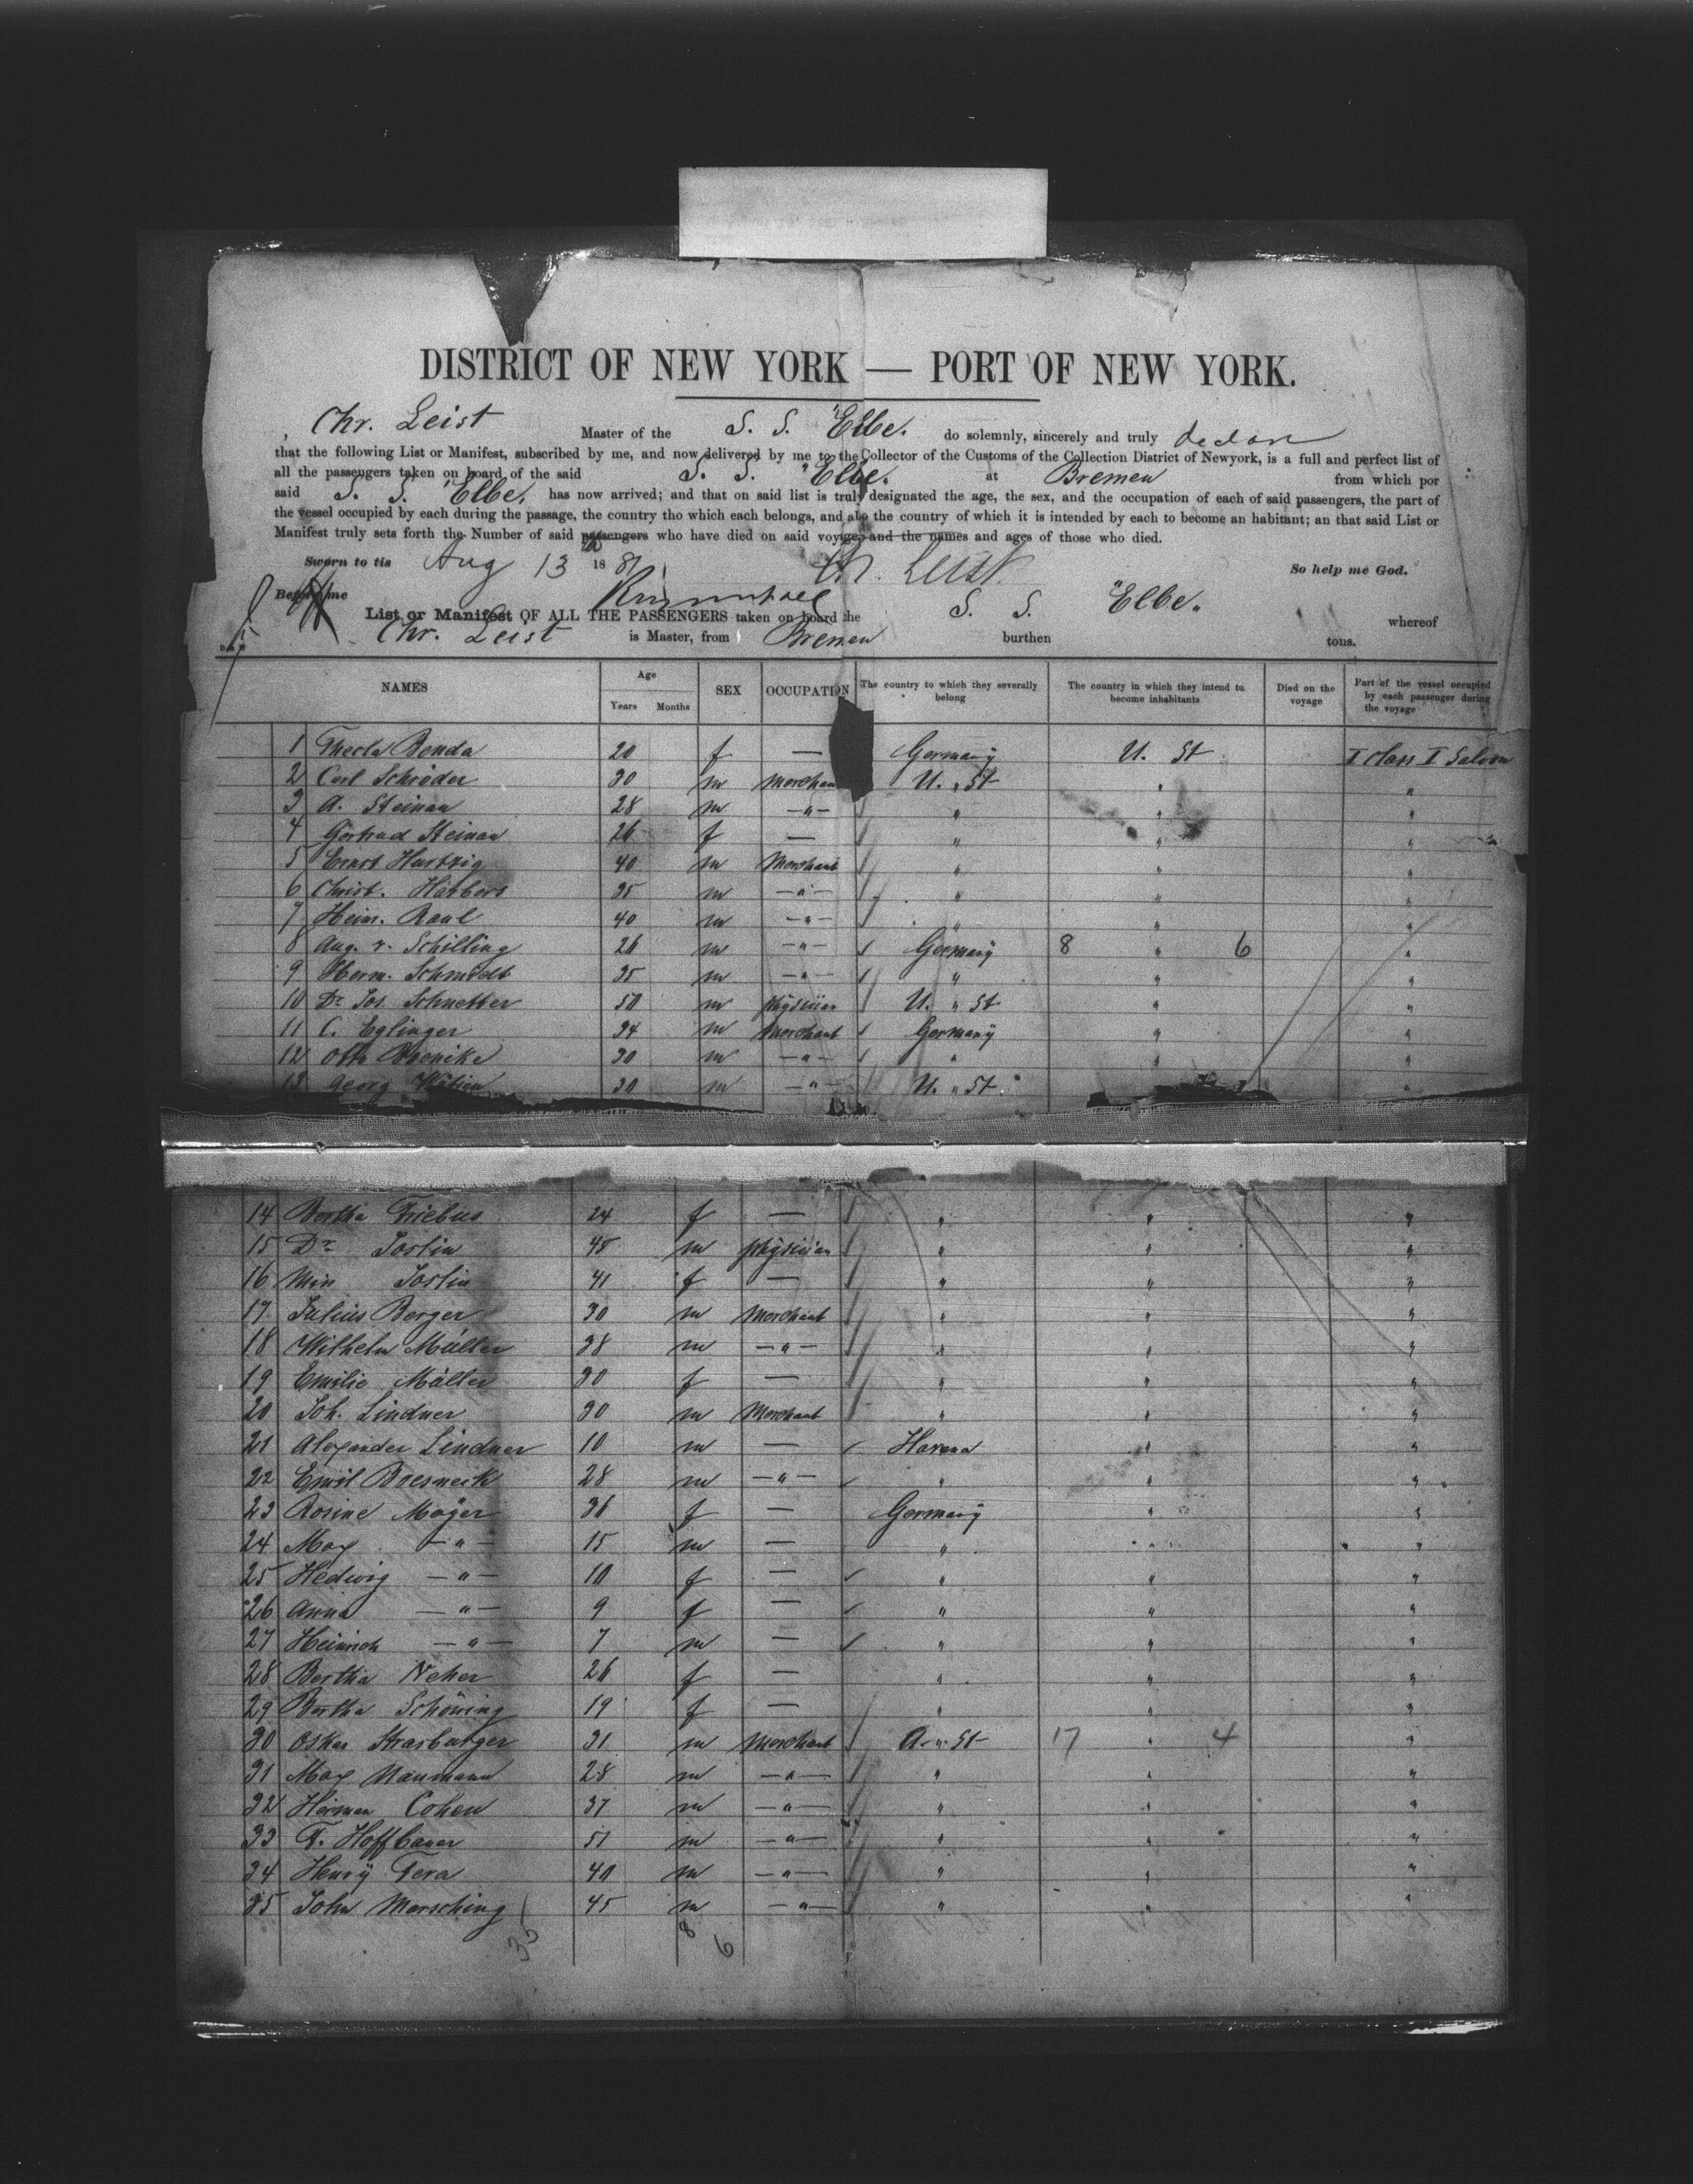 DISTRICT OF NEW YORK — PORT OF NEW YORK.
, Chr. Leist Master of the S. S. "Elbe. do solemnly, sincerely and truly
that the following List or Manifest, subscribed by me, and now delivered by me to the Collector of the Customs of the Collection District of Newyork, is a full and perfect list of
all the passengers taken on board of the said S. S. "Elbe. at Bremen from which por
said S. S. "Elbe. has now arrived; and that on said list is truly designated the age, the sex, and the occupation of each of said passengers, the part of
the vessel occupied by each during the passage, the country tho which each belongs, and also the country of which it is intended by each to become an habitant; an that said List or
Manifest truly sets forth the Number of said passengers who have died on said voyage, and the names and ages of those who died.
Sworn to tis Aug 13 1881 Ch. Leist. So help me God.
Before me
List or Manifest OF ALL THE PASSENGERS taken on board the S. S. "Elbe" whereof
Chr. Leist is Master, from Bremen burthen tons.
NAMES Age Years Months SEX OCCUPATION The country to which they severally belong The country in which they intend to become inhabitants Died on the voyage Part of the vessel occupied by each passenger during the voyage
1 Thecla Benda 20 f — Germany U. St I class I Saloon
2 Carl Schröder 30 m merchant U. " St " "
3 A. Steinau 28 m —"— " " "
4 Gertrud Steinau 26 f — " " "
5 Ernst Hartzig 40 m Merchant " " "
6 Christ. Habbers 35 m —"— " " "
7 Hein. Raul 40 m —"— " " "
8 Aug. v. Schilling 26 m —"— Germany 8 " 6 "
9 Herm. Schmidt 35 m —"— " " "
10 Dr. Jos. Schnetter 50 m physician U. " St " "
11 C. Eglinger 34 m Merchant Germany " "
12 Otto 30 m —"— " " "
13 Georg 30 m —"— U. " St. "
14 Bertha Friebus 24 f — " " "
15 Dr. Joslin 48 m physician " " "
16 Miss Joslin 41 f — " " "
17 Julius Berger 30 m Merchant " " "
18 Wilhelm Müller 38 m —"— " " "
19 Emilie Müller 30 f — " " "
20 Joh. Lindner 30 m Merchant " " "
21 Alexander Lindner 10 m — Havana " "
22 Emil Boesneck 28 m —"— " " "
23 Rosine Mayer 36 f — Germany " "
24 Max —"— 15 m — " " "
25 Hedwig —"— 10 f — " " "
26 Anna —"— 9 f — " " "
27 Heinrich —"— 7 m — " " "
28 Bertha Neher 26 f — " " "
29 Bertha Schöning 19 f — " " "
30 Oskar Strasburger 31 m Merchant U. " St 17 " 4 "
31 Max Naumann 28 m —"— " " "
32 Herman Cohen 37 m —"— " " "
33 F. Hoffbauer 51 m —"— " " "
34 Henry Fera 40 m —"— " " "
35 John Marsching 45 m —"— " " "
35 8 6